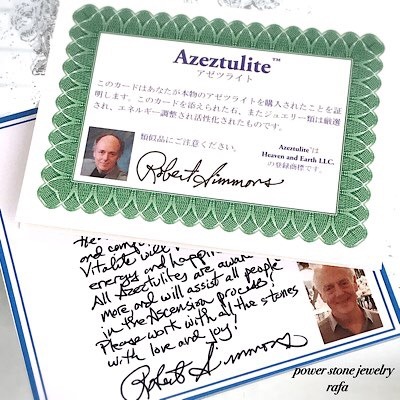 Azeztulite™
アゼツライト
このカードはあなたが本物のアゼツライトを購入されたことを証
明します。このカードを添えられた石、またジュエリー類は厳選
され、エネルギー調整され活性化されたものです。
類似品にご注意ください。
Azeztulite™は
Heaven and Earth LLC.
の登録商標です。
Robert Simmons
and
Vitalite will
energy and
All Azeztulites are
more, and will assist all people
in the Ascension process!
Please work with all the stones
with love and joy!
Robert Simmons
power stone jewelry
rafa